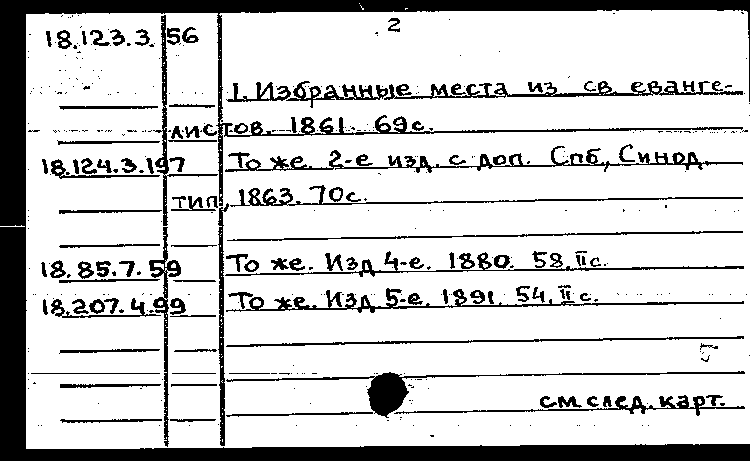 2
18.123.3.56
1. Избранные места из св. еванге-
листов. 1861. 69с.
18.124.3.197 То же. 2-е изд. с доп. Спб., Синод.
тип., 1863. 70с.
18.85.7.59 То же. Изд. 4-е. 1880. 58, II с.
18.207.4.99 То же. Изд. 5-е. 1891. 54, II с.
см. след. карт.